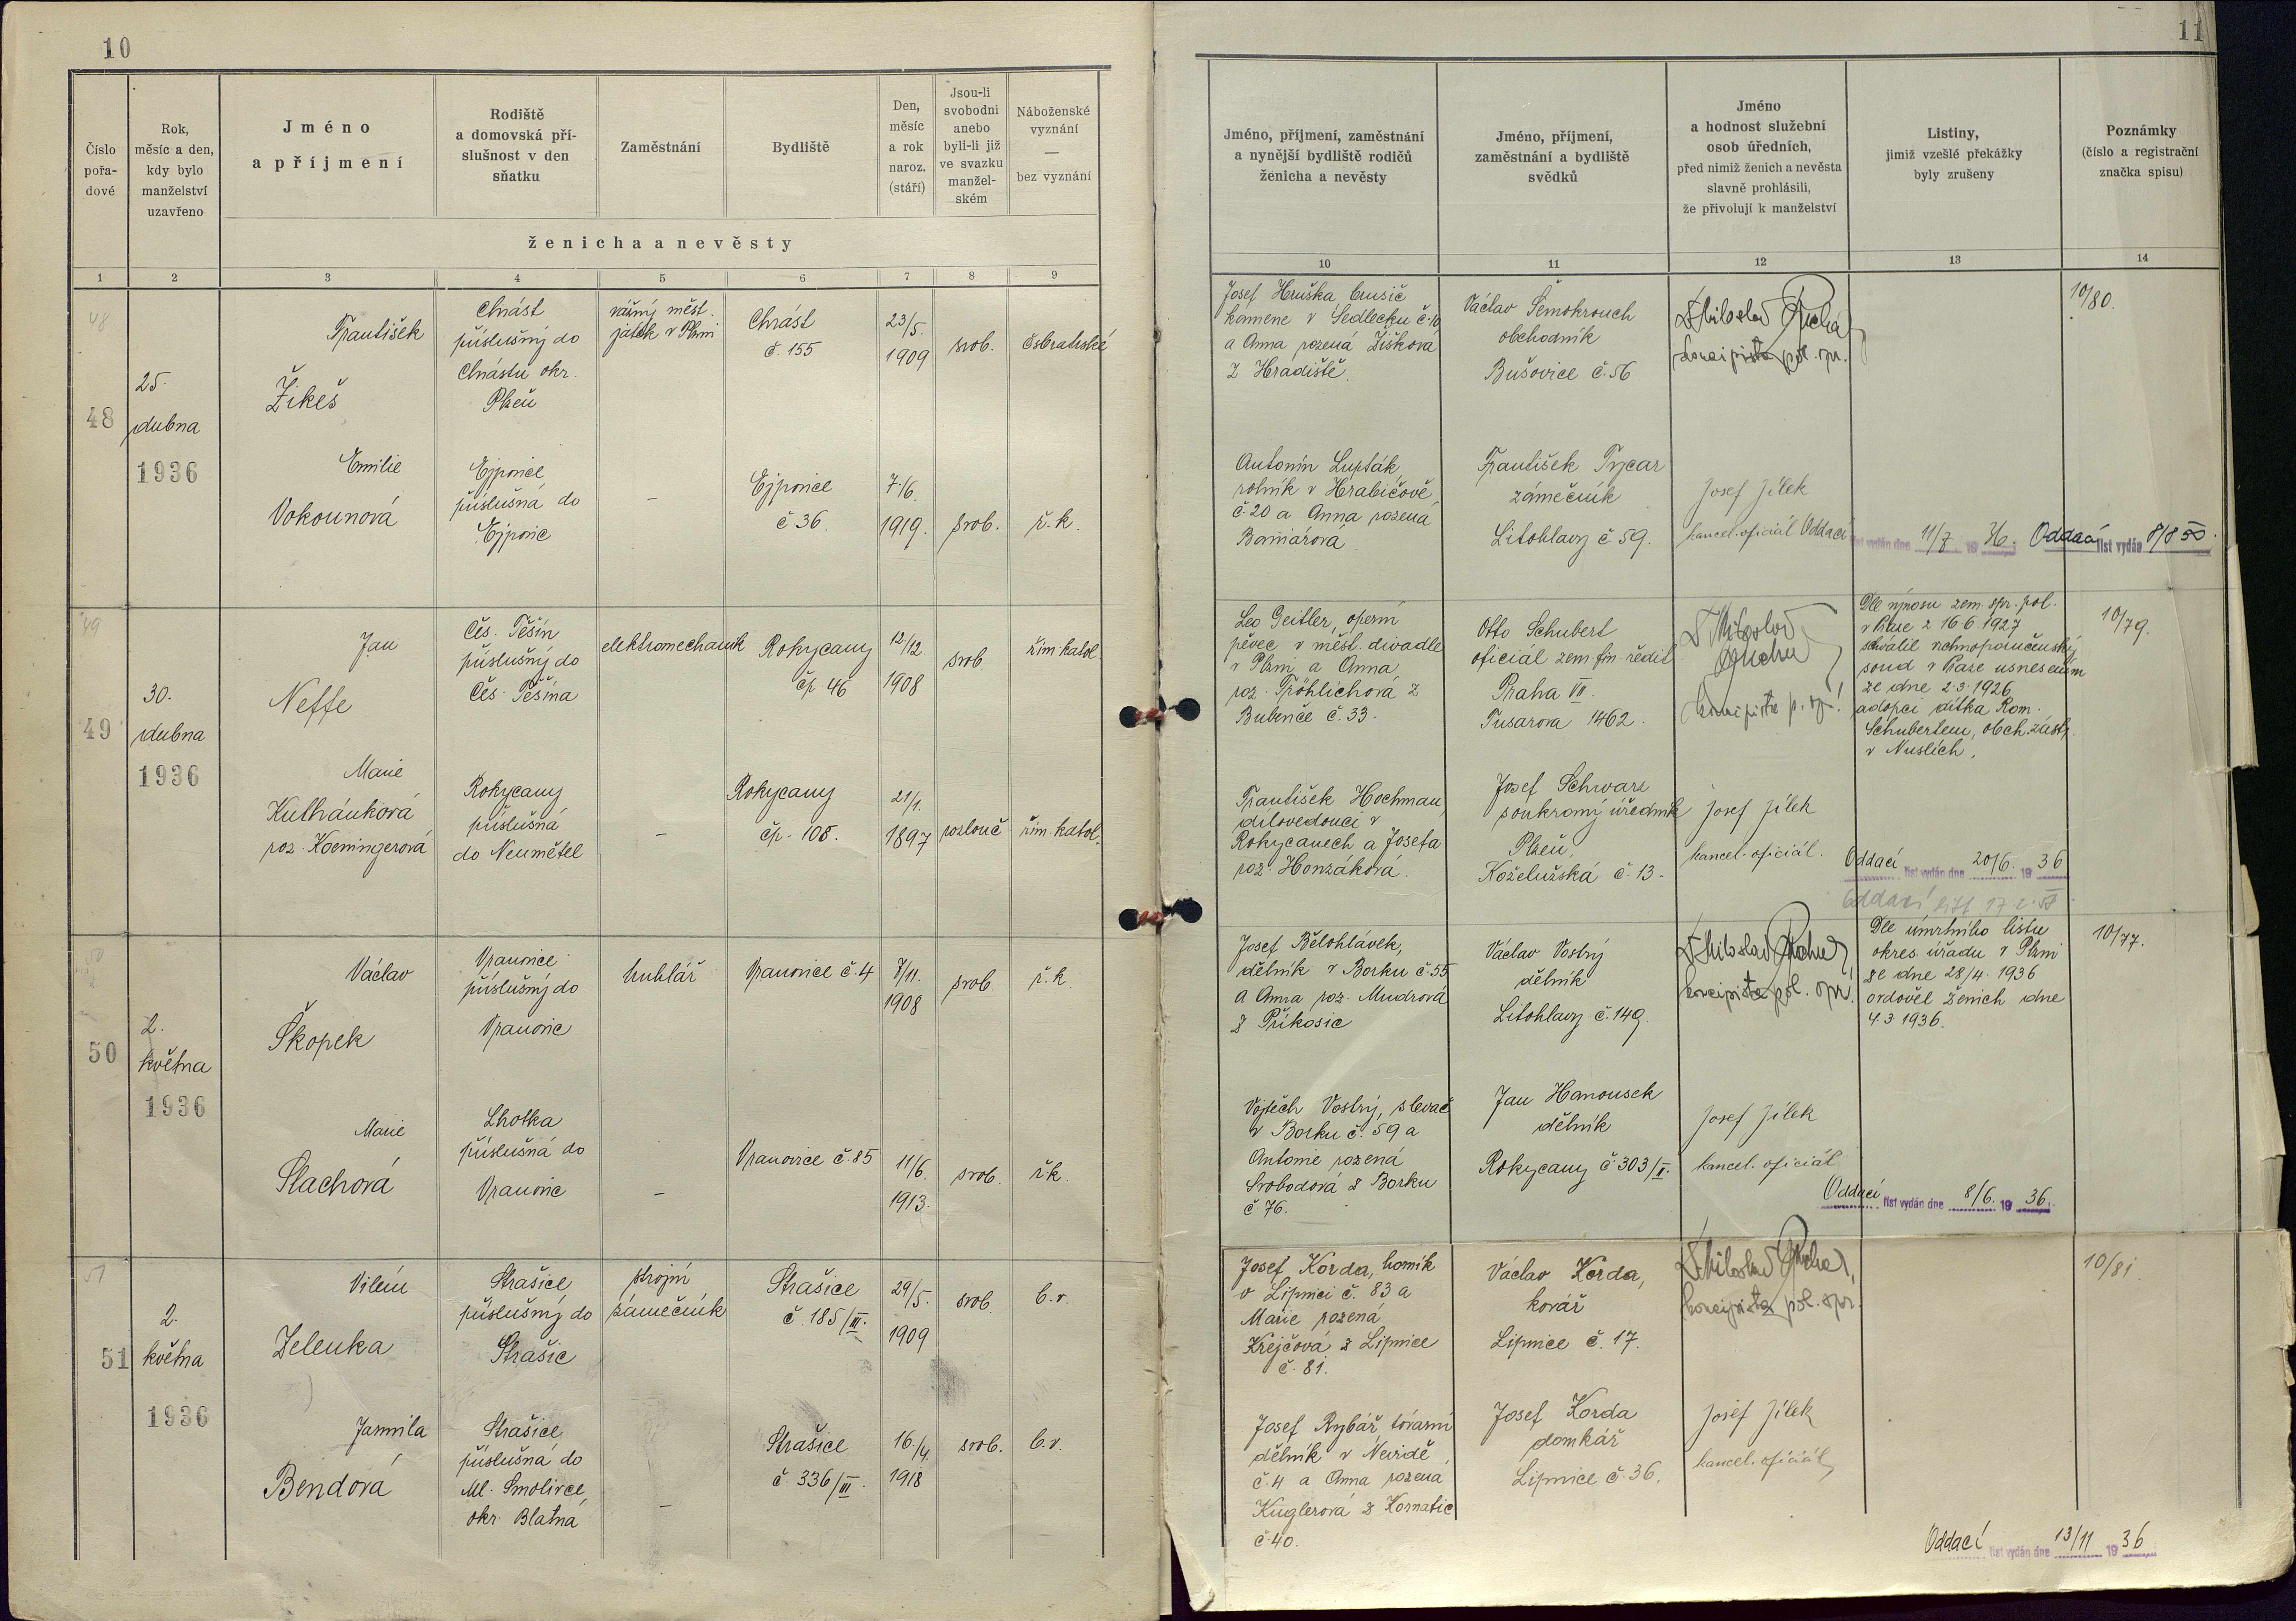 10
Číslo
pořa-
dové
Rok,
měsíc a den,
kdy bylo
manželství
uzavřeno
Jméno
a příjmení
Rodiště
a domovská pří-
slušnost v den
sňatku
Zaměstnání
Bydliště
Den,
měsíc
a rok
naroz.
(stáří)
Jsou-li
svobodni
anebo
byli-li již
ve svazku
manžel-
ském
Náboženské
vyznání
—
bez vyznání
ženicha a nevěsty
1 2 3 4 5 6 7 8 9
48
48
25.
dubna
1936
František
Žikeš
Chrást
příslušný do
Chrástu okr.
Plzeň
vážný měst.
jatek v Plzni
Chrást
č. 155
23/5.
1909
svob.
čsbratrské
Emilie
Vokounová
Ejpovice
příslušná do
Ejpovic
–
Ejpovice
č 36.
7./6.
1919.
svob.
ř. k.
49
49
30.
dubna
1936
Jan
Neffe
Čes. Těšín
příslušný do
Čes. Těšína
elektromechanik
Rokycany
čp. 46
12/12.
1908
svob
řím. katol.
Marie
Kulhánková
roz. Koeningerová
Rokycany
příslušná
do Neumětel
–
Rokycany
čp. 108.
21/1.
1897
rozlouč
řím. katol.
50
50
2.
května
1936
Václav
Škopek
Vranovice
příslušný do
Vranovic
truhlář
Vranovice č. 4
7/11.
1908
svob.
ř. k.
Marie
Slachová
Lhotka
příslušná do
Vranovic
–
Vranovice č. 85
11/6.
1913.
svob.
řk.
51
51
2.
května
1936
Vilém
Zelenka
Strašice
příslušný do
Strašic
strojní
zámečník
Strašice
č. 185/III.
29/5.
1909
svob.
b. v.
Jarmila
Bendová
Strašice
příslušná do
Ml. Smolivce,
okr. Blatná
–
Strašice
č. 336/III
16./4.
1918
svob.
b. v.
11
Jméno, příjmení, zaměstnání
a nynější bydliště rodičů
ženicha a nevěsty
Jméno, příjmení,
zaměstnání a bydliště
svědků
Jméno
a hodnost služební
osob úředních,
před nimiž ženich a nevěsta
slavně prohlásili,
že přivolují k manželství
Listiny,
jimiž vzešlé překážky
byly zrušeny
Poznámky
(číslo a registrační
značka spisu)
10 11 12 13 14
Josef Hruška, brusič
kamene v Sedlecku č. 10
a Anna rozená Žišková
z Hradiště.
Václav Šemokrouch
obchodník
Bušovice č. 56
Miloslav
koncipista pol. spr.
10/80.
Antonín Lupták,
rolník v Hrabičově
č. 20 a Anna rozená
František Trycar
zámečník
Litohlavy č 59.
Josef Jílek
kancel. oficiál
Oddací list vydán dne 11/7. 19 36.
Oddací list vydán 8/8 50.
Leo Geitler, operní
pěvec v měst. divadle
v Plzni a Anna
roz. Fröhlichová z
Bubenče č. 33.
Otto Schubert
oficiál zem. fin. ředit.
Praha VII.
Tusarova 1462.
Miloslav
koncipista p. spr.
Dle výnosu zem. spr. pol.
v Praze z 16 6. 1927
schválil vrchnoporučenský
soud v Praze usnesením
ze dne 2. 3. 1926
adopci dítka Rom.
Schubertem, obch. zást.
v Nuslích.
10/79.
František Hochman,
dílovedoucí v
Rokycanech a Josefa
roz. Honzáková.
Josef Schwarz
soukromý úředník
Plzeň,
Koželužská č. 13.
Josef Jílek
kancel. oficiál.
Oddací list vydán dne 20/6. 19 36
Oddací list 17. 2.
Josef Bělohlávek,
dělník v Borku č. 55
a Anna roz. Mudrová
z Příkosic
Václav Vostrý
dělník
Litohlavy č. 149.
Miloslav
koncipista pol. spr.
Dle úmrtního listu
okres. úřadu v Plzni
ze dne 28/4. 1936
ovdověl ženich dne
4. 3. 1936.
10/77.
Vojtěch Vostrý, slevač
v Borku č. 59 a
Antonie rozená
Svobodová z Borku
č 76.
Jan Hanousek
dělník
Rokycany č. 303/II.
Josef Jílek
kancel. oficiál
Oddací list vydán dne 8/6. 19 36.
Josef Korda, horník
v Lipnici č. 83 a
Marie rozená
Krejčová z Lipnice
č. 81.
Václav Korda,
kovář
Lipnice č. 17.
Miloslav
koncipista pol. spr.
10/81.
Josef Rybář, tovární
dělník v Nevidě
č. 4 a Anna rozená
Kuglerová z Kornatic
č. 40.
Josef Korda
domkář
Lipnice č. 36.
Josef Jílek
kancel. oficiál
Oddací list vydán dne 13/11 19 36